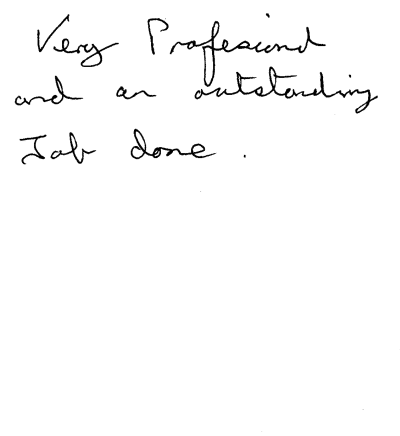 Very Profesional
and an outstanding
Job done .